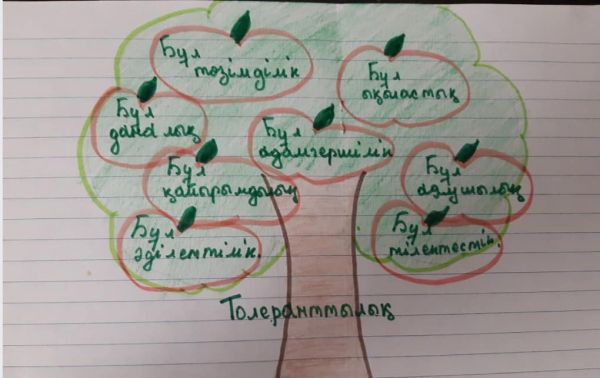 Бұл
төзімділік
Бұл
ықыластық
Бұл
даналық
Бұл
адамгершілік
Бұл
қайырымдылық
Бұл
аяушылық
Бұл
әділеттілік.
Бұл
тілектестік.
Толеранттылық